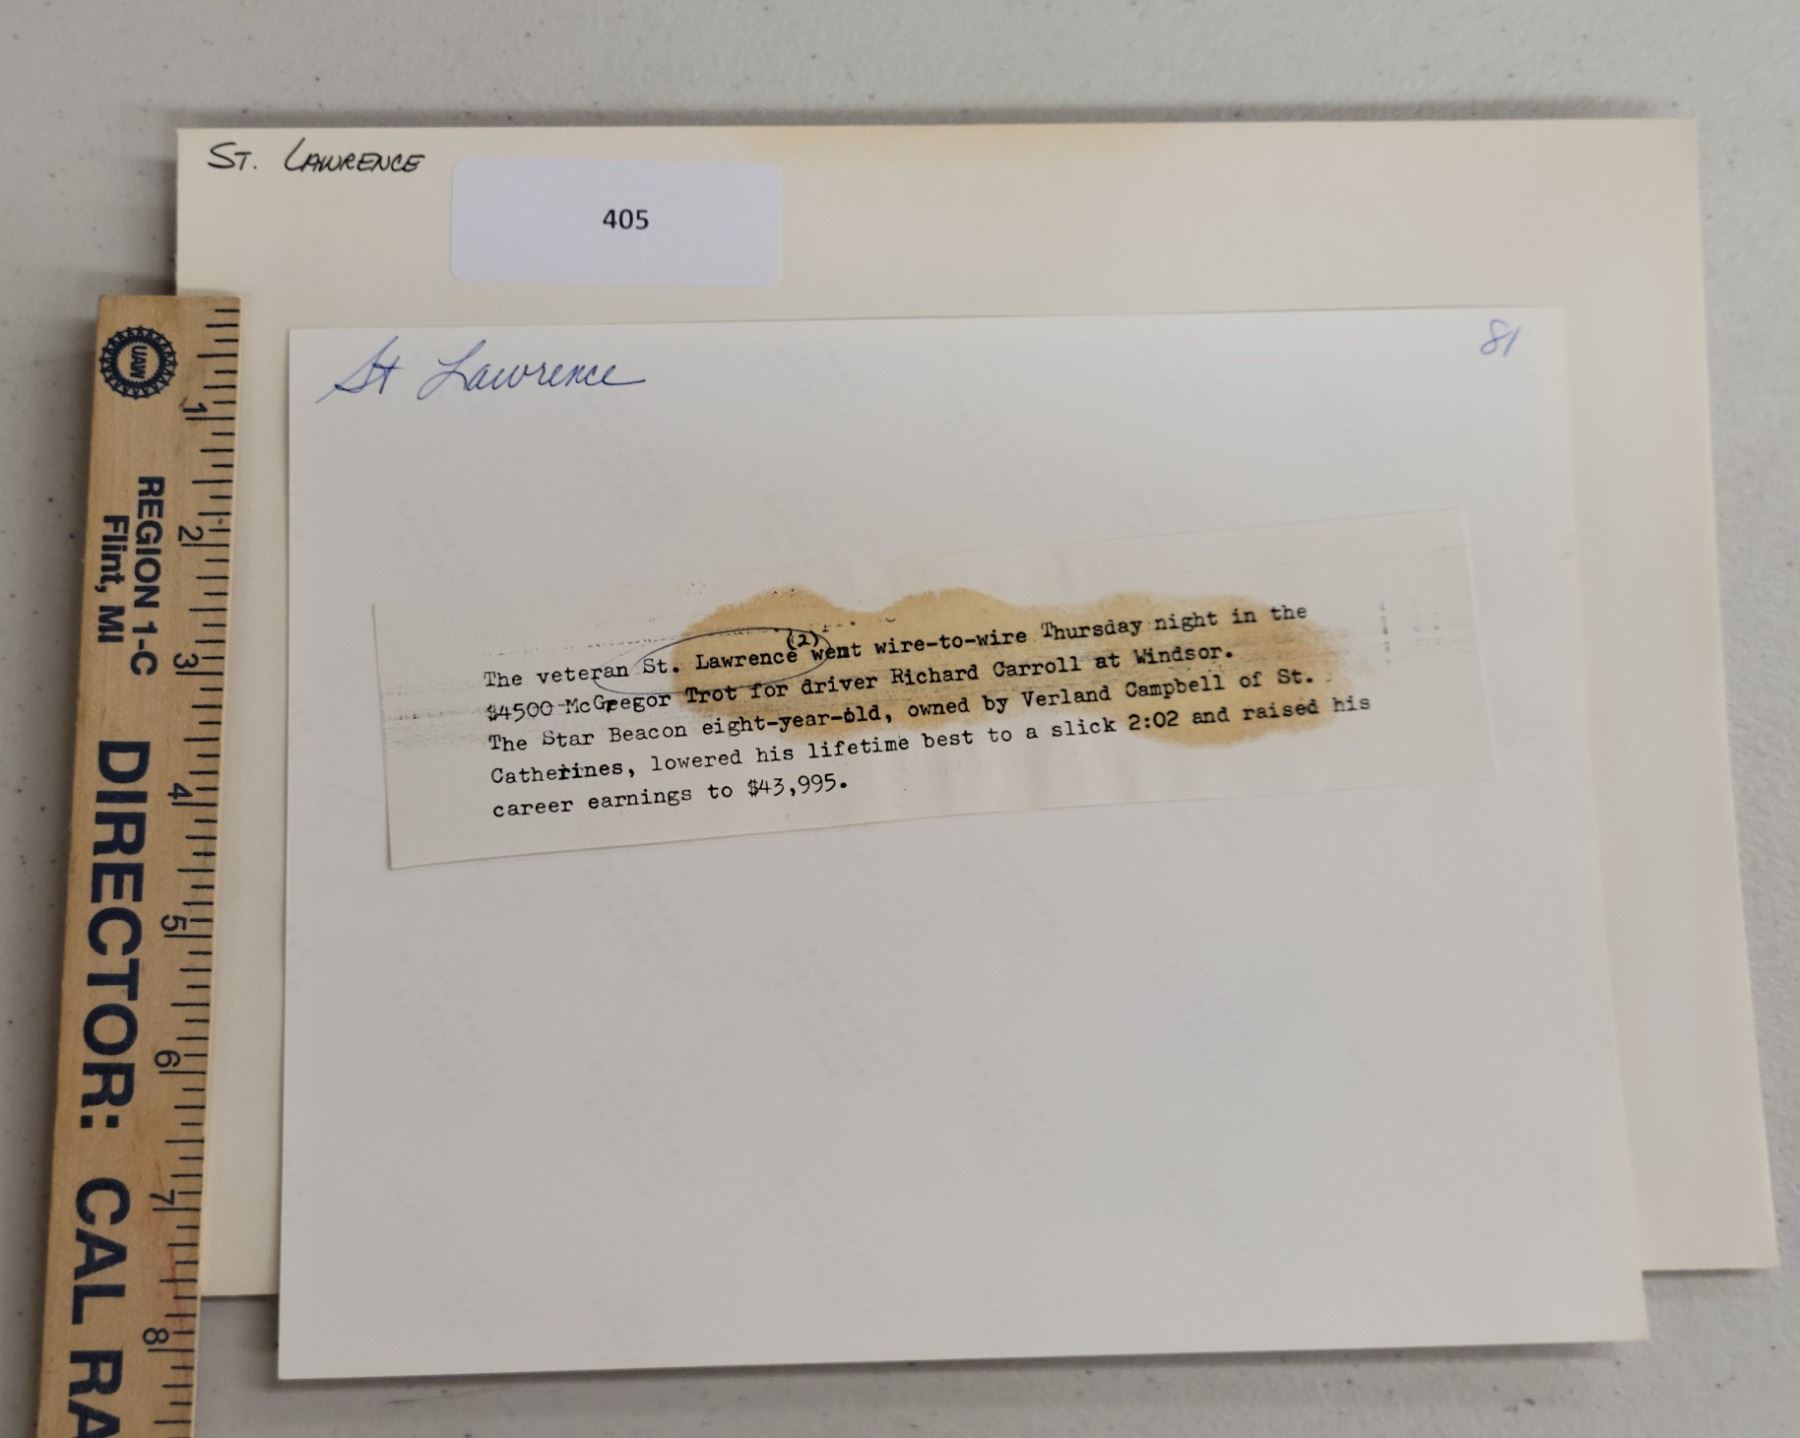 ST. LAWRENCE
405
St Lawrence
81
(2)
The veteran St. Lawrence went wire-to-wire Thursday night in the
$4500 McGregor Trot for driver Richard Carroll at Windsor.
The Star Beacon eight-year-old, owned by Verland Campbell of St.
Catherines, lowered his lifetime best to a slick 2:02 and raised his
career earnings to $43,995.
UAW
REGION 1-C
Flint, MI
DIRECTOR: CAL RA
1
2
3
4
5
6
7
8